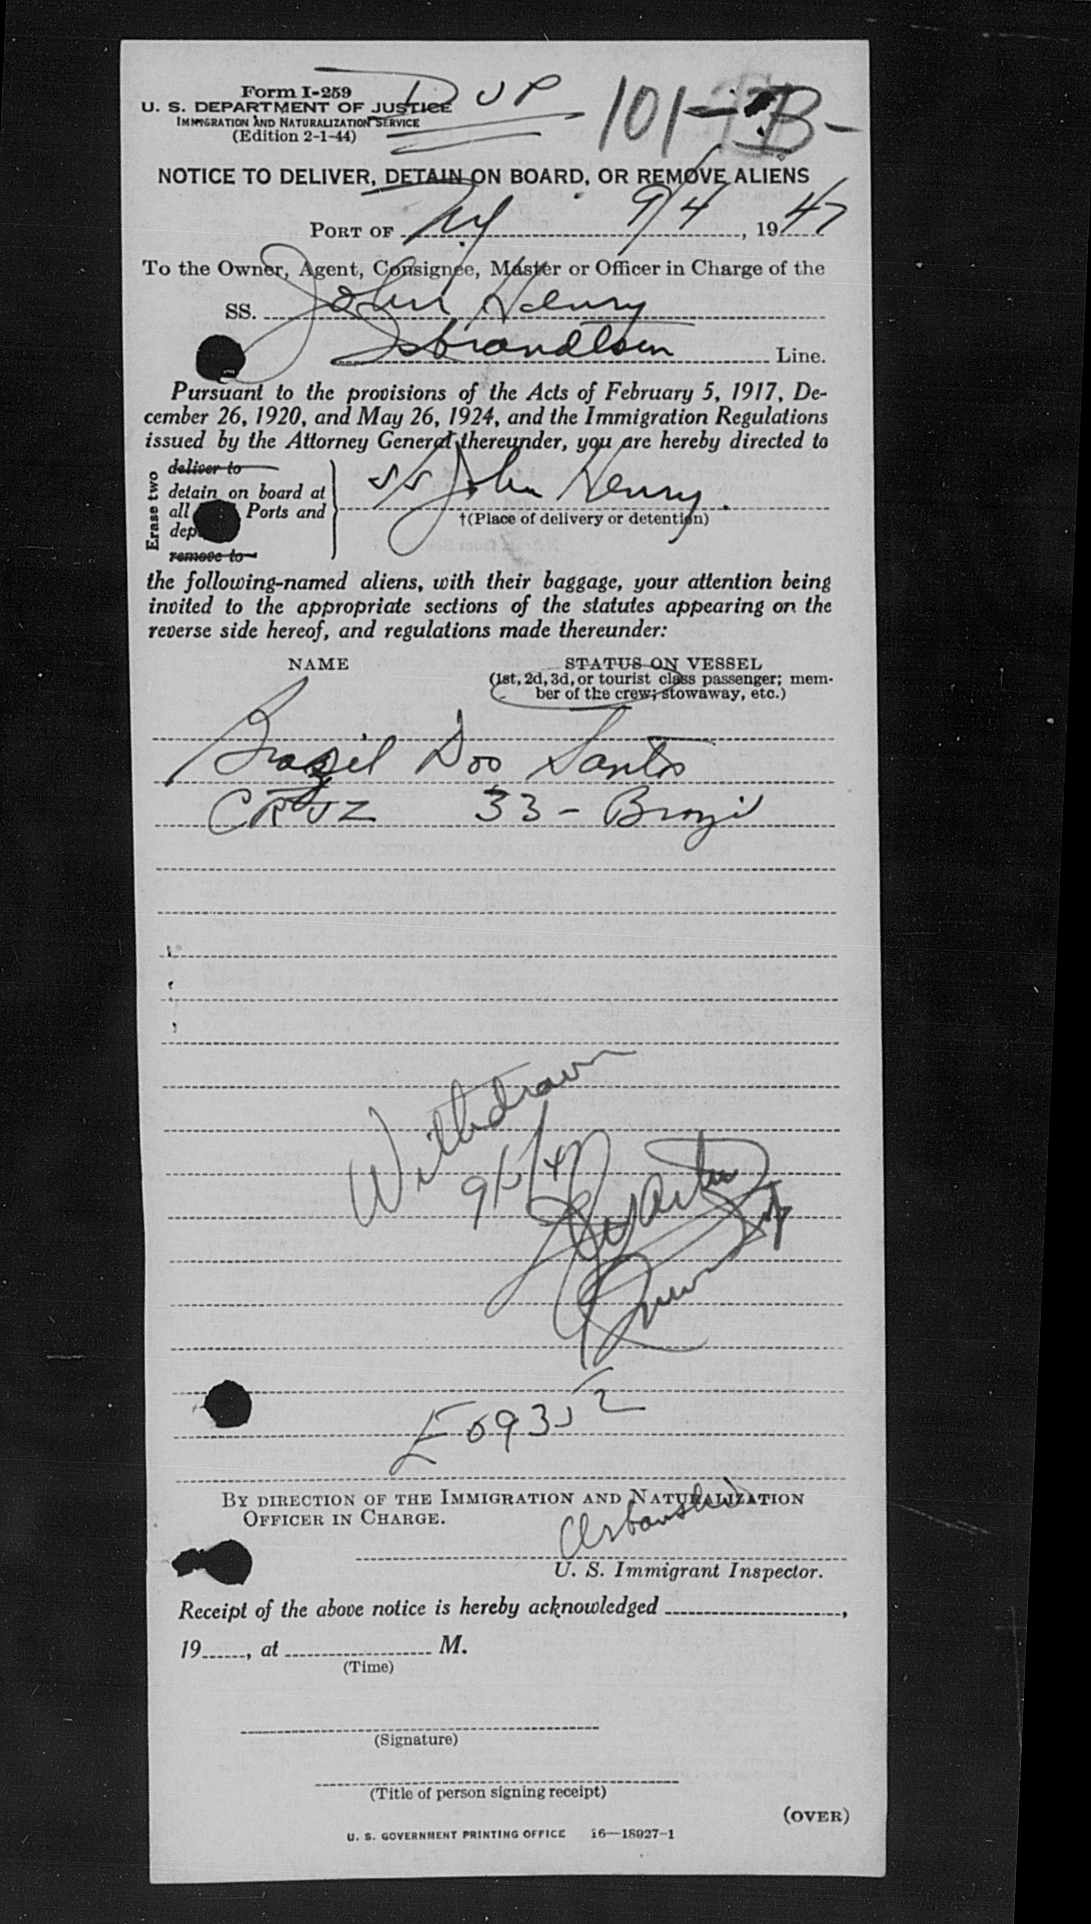 Form I-259
U. S. DEPARTMENT OF JUSTICE
IMMIGRATION AND NATURALIZATION SERVICE
(Edition 2-1-44)
DUP
101-B-
NOTICE TO DELIVER, DETAIN ON BOARD, OR REMOVE ALIENS
PORT OF NY 9/4, 1947
To the Owner, Agent, Consignee, Master or Officer in Charge of the
SS. John Henry
Isbrandtsen Line.
Pursuant to the provisions of the Acts of February 5, 1917, De-
cember 26, 1920, and May 26, 1924, and the Immigration Regulations
issued by the Attorney General thereunder, you are hereby directed to
Erase two
deliver to
detain on board at
all Ports and
remove to
SS John Henry
†(Place of delivery or detention)
the following-named aliens, with their baggage, your attention being
invited to the appropriate sections of the statutes appearing on the
reverse side hereof, and regulations made thereunder:
NAME STATUS ON VESSEL
(1st, 2d, 3d, or tourist class passenger; mem-
ber of the crew; stowaway, etc.)
Brazil Dos Santos
CRUZ 33 - Brazil
Withdrawn
9/5/47
E09352
BY DIRECTION OF THE IMMIGRATION AND NATURALIZATION
OFFICER IN CHARGE.
U. S. Immigrant Inspector.
Receipt of the above notice is hereby acknowledged ,
19 , at M.
(Time)
(Signature)
(Title of person signing receipt)
(OVER)
U. S. GOVERNMENT PRINTING OFFICE 16—18927-1